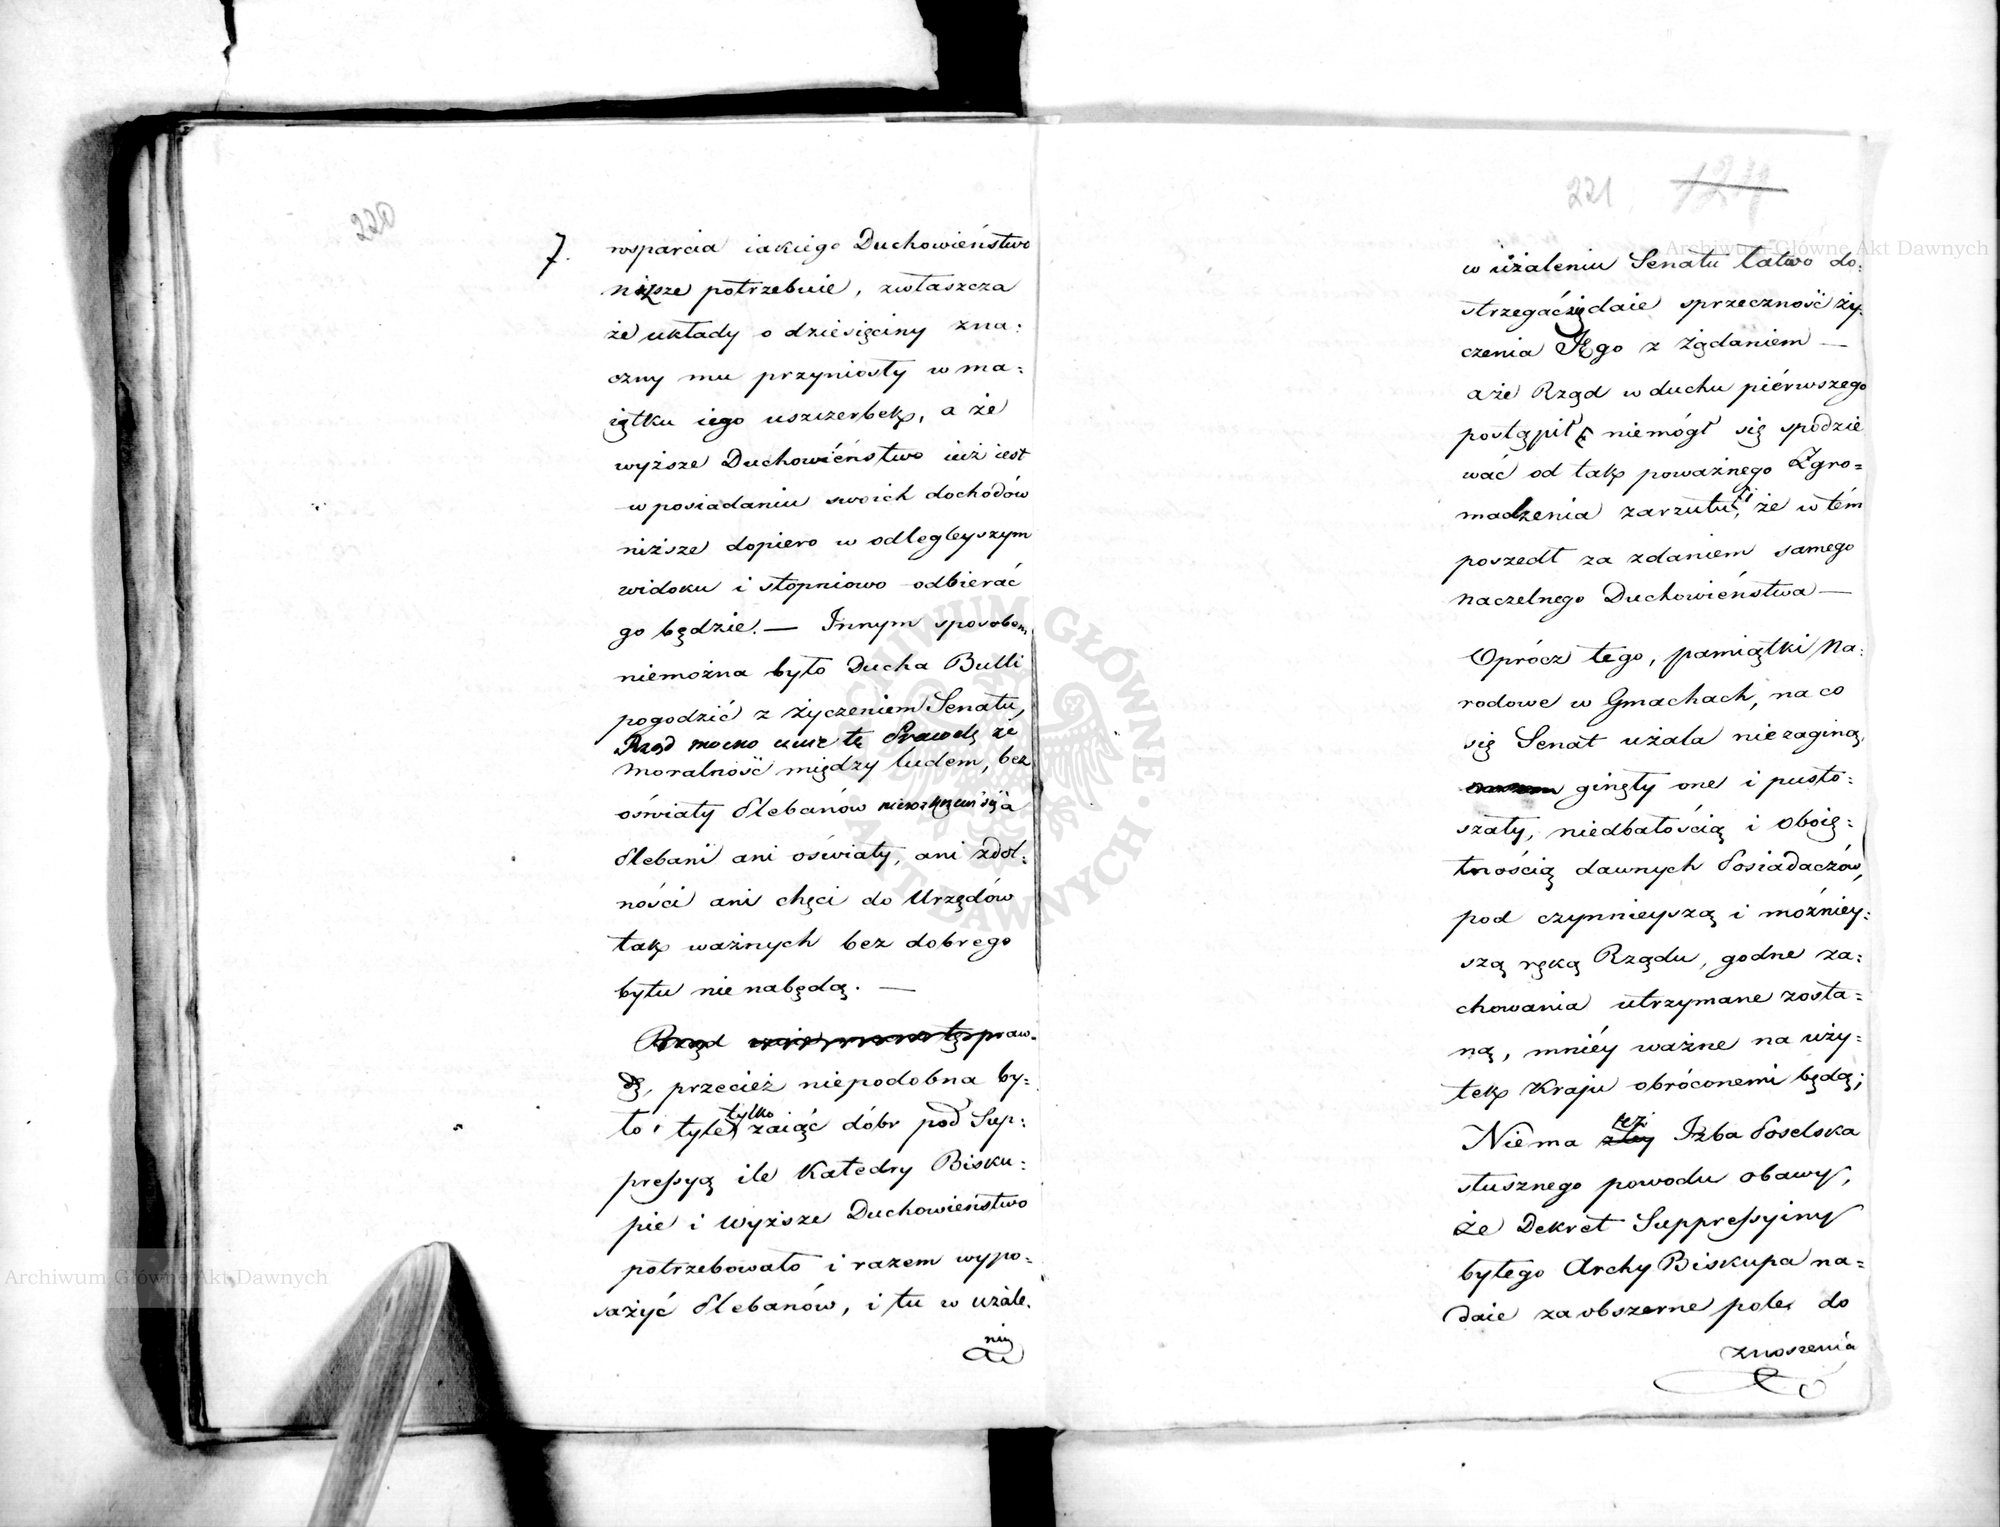 220
7.
wsparcia iakiego Duchowieństwo
niższe potrzebuie, zwłaszcza
że układy o dziesięciny zna:
czny mu przyniosły w ma:
iątku iego uszczerbek, a że
wyższe Duchowiéństwo iuż iest
w posiadaniu swoich dochodów
niższe dopiero w odległeyszym
widoku i stopniowo odbierać
go będzie. — Innym sposobem
niemożna było Ducha Bulli
pogodzić z życzeniem Senatu,
Rząd mocno czuie tę Prawdę że
moralność między ludem, bez
oświaty Plebanów a
Plebani ani oświaty, ani zdol:
ności ani chęci do Urzędów
tak ważnych bez dobrego
bytu nie nabędą. —
Rząd tę praw-
dę, przecież niepodobna by:
ło, tyle tylko zaiąć dóbr pod Sup:
pressyą ile Katedry Bisku:
pie i Wyższe Duchowieństwo
potrzebowało i razem wypo:
sażyć Plebanów, i tu w użale.
niu
221
w użaleniu Senatu łatwo do:
strzegać się daie sprzeczność ży:
czenia Jego z Żądaniem —
a że Rząd w duchu piérwszego
postąpił, niemógł się spodzie
wać od tak poważnego Zgro=
madzenia zarzutu, że w tém
poszedł za zdaniem samego
Naczelnego Duchowiéństwa —
Oprócz tego, pamiątki Na:
rodowe w Gmachach, na co
się Senat użala nie zaginą,
ginęły one i pusto:
szały, niedbałością i oboię:
tnością dawnych Posiadaczów,
pod czynnieyszą i możniey:
szą ręką Rządu, godne za:
chowania utrzymane zosta=
ną, mniéy ważne na uży:
tek Kraju obróconemi będą;
Niema też Izba Poselska
słusznego powodu obawy,
że Dekret Suppressyiny
byłego Archy Biskupa na=
daie za obszerne pole do
znoszenia
Archiwum Główne Akt Dawnych
Archiwum Główne Akt Dawnych
ARCHIWUM GŁÓWNE · AKT DAWNYCH ·